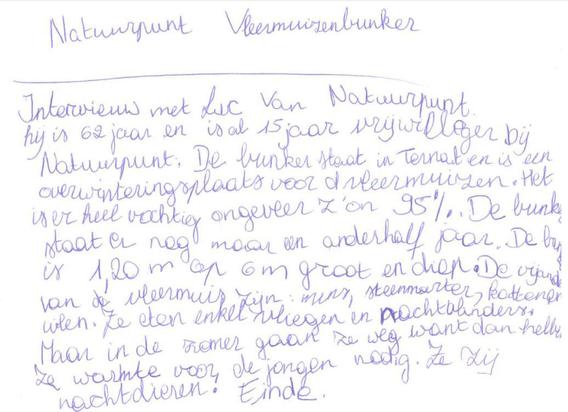 Natuurpunt Vleermuizenbunker
Interview met Luc Van Natuurpunt.
hij is 62 jaar en is al 15 jaar vrijwilleger bij
Natuurpunt. De bunker staat in Ternat en is een
overwinteringsplaats voor vleermuizen. Het
is er heel vochtig ongeveer z'on 95%. De bunk
staat er nog maar een anderhalf jaar. De bu
is 1,20 m op 6m groot en diep. De vijand
van de vleermuis zijn: mens, steenmarter, katten en
uilen. Ze eten enkel vliegen en nachtvlinders.
Maar in de zomer gaan ze weg want dan hebb
ze warmte voor de jongen nodig. Ze zij
nachtdieren. Einde.